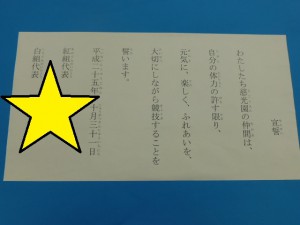 宣誓
わたしたち慈光園の仲間は、
自分の体力の許す限り、
元気に、楽しく、ふれあいを、
大切にしながら競技することを
誓います。
平成二十五年十月三十一日
紅組代表
白組代表